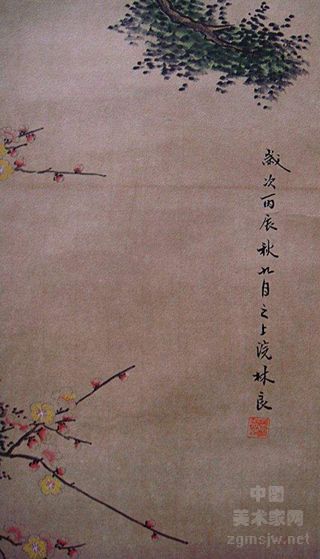 歲次丙辰秋九月之上浣林良
中国
美术家网
zgmsjw.net